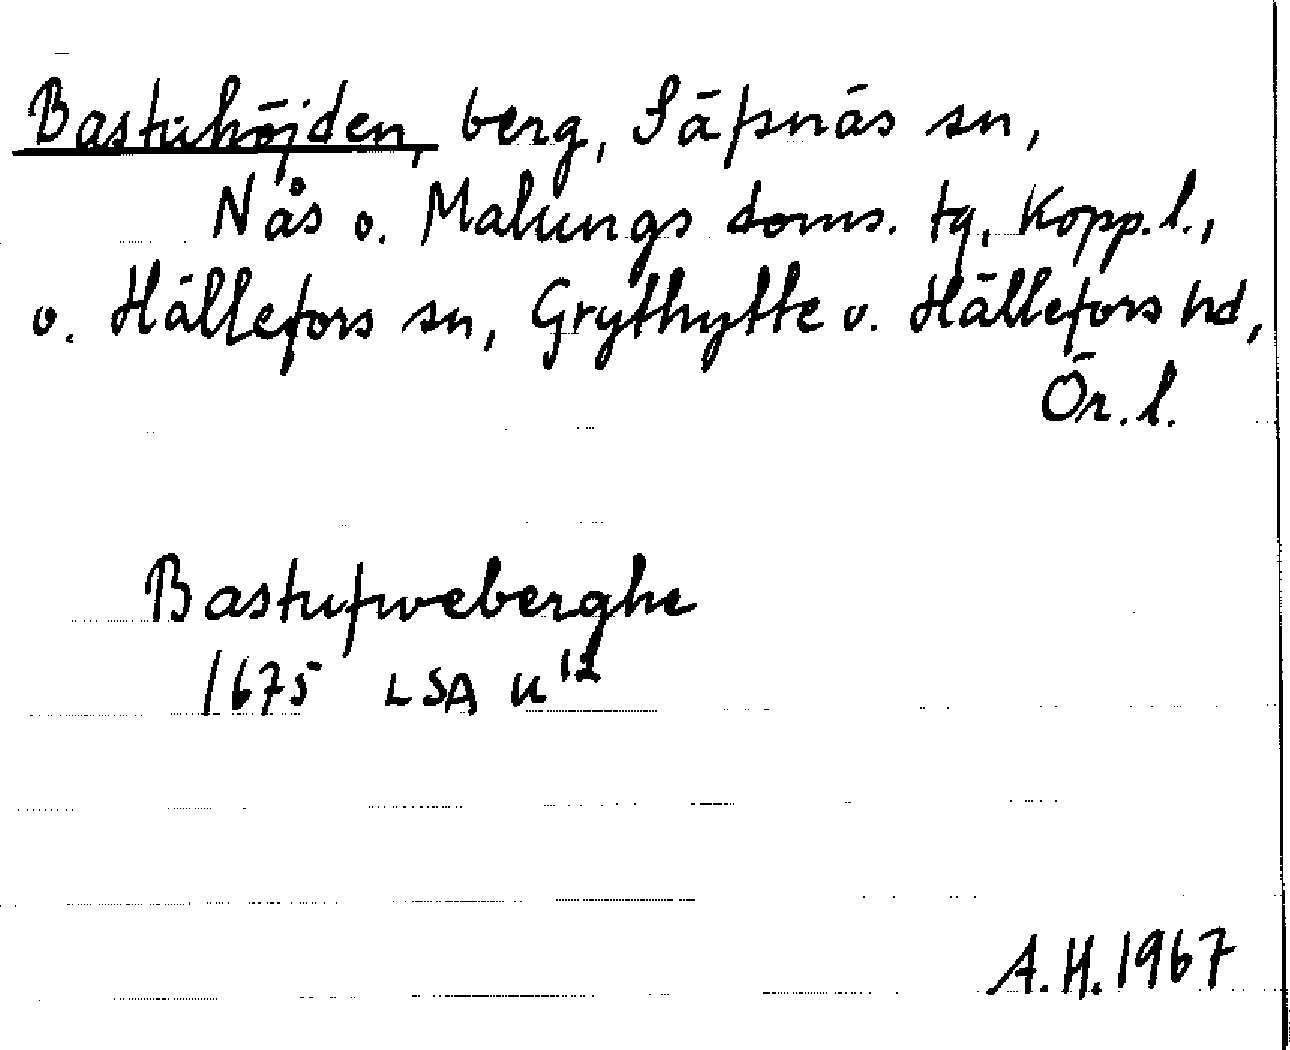 Bastuhöjden, berg, Säfsnäs sn,
Nås o. Malungs doms. tg, Kopp.l.,
o. Hällefors sn, Grythytte o. Hällefors hd,
Ör.l.
Bastufweberghe
1675 LSA U12
A.H.1967